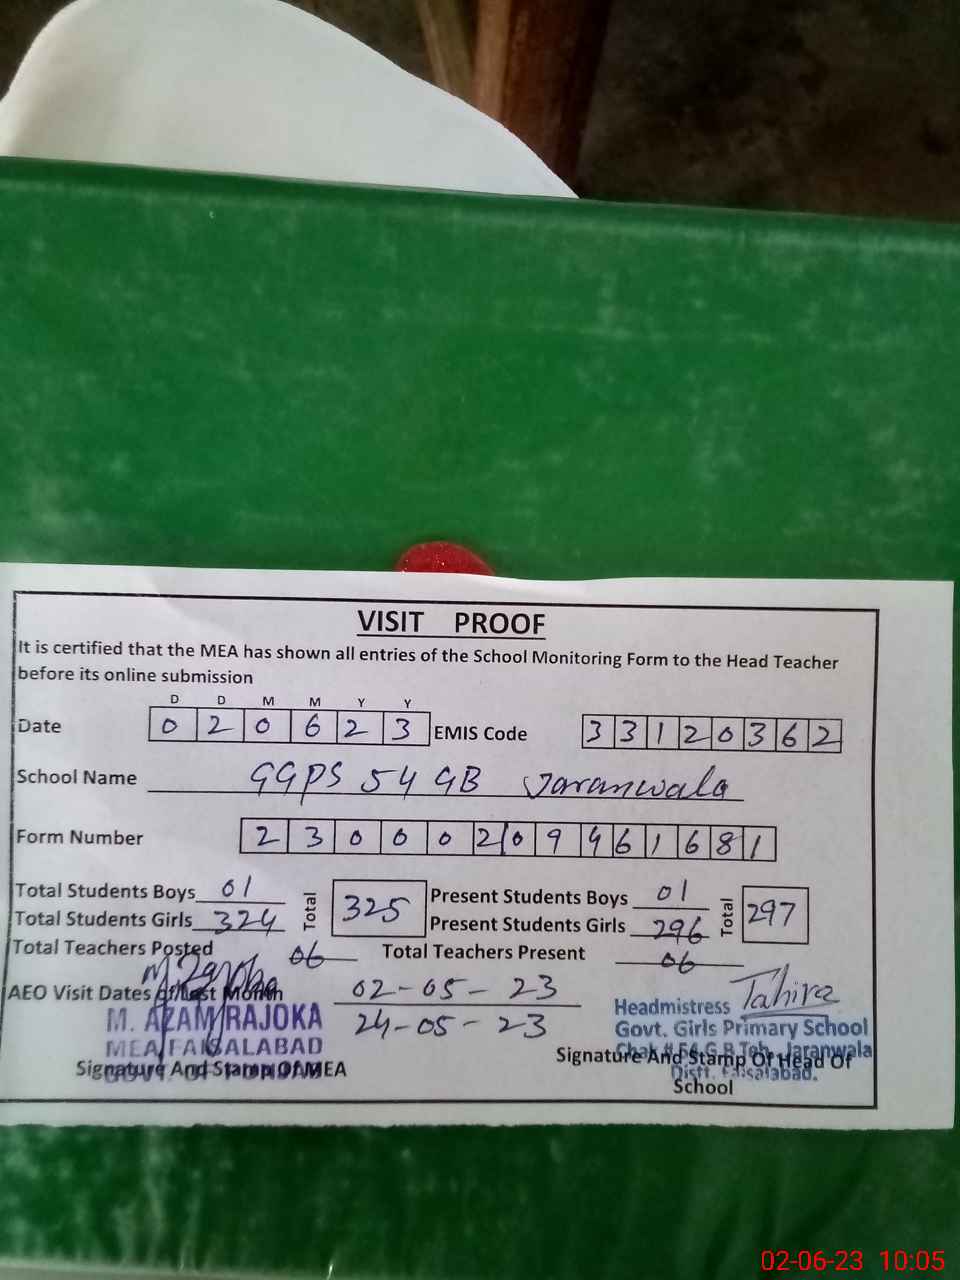 VISIT PROOF
It is certified that the MEA has shown all entries of the School Monitoring Form to the Head Teacher
before its online submission
D D M M Y Y
Date 0 2 0 6 2 3 EMIS Code 3 3 1 2 0 3 6 2
School Name GGPS 54 GB Jaranwala
Form Number 2 3 0 0 0 2 0 9 4 6 1 6 8 1
Total Students Boys 01 Total 325 Present Students Boys 01 Total 297
Total Students Girls 324 Present Students Girls 296
Total Teachers Posted 06 Total Teachers Present 06
AEO Visit Dates of Last Month 02-05-23
24-05-23
Tahira
Headmistress
Govt. Girls Primary School
Chak # 54 G.B Teh. Jaranwala
Distt. Faisalabad.
M. AZAM RAJOKA
MEA FAISALABAD
GOVT. OF
Signature And Stamp Of MEA
Signature And Stamp Of Head Of
School
02-06-23 10:05